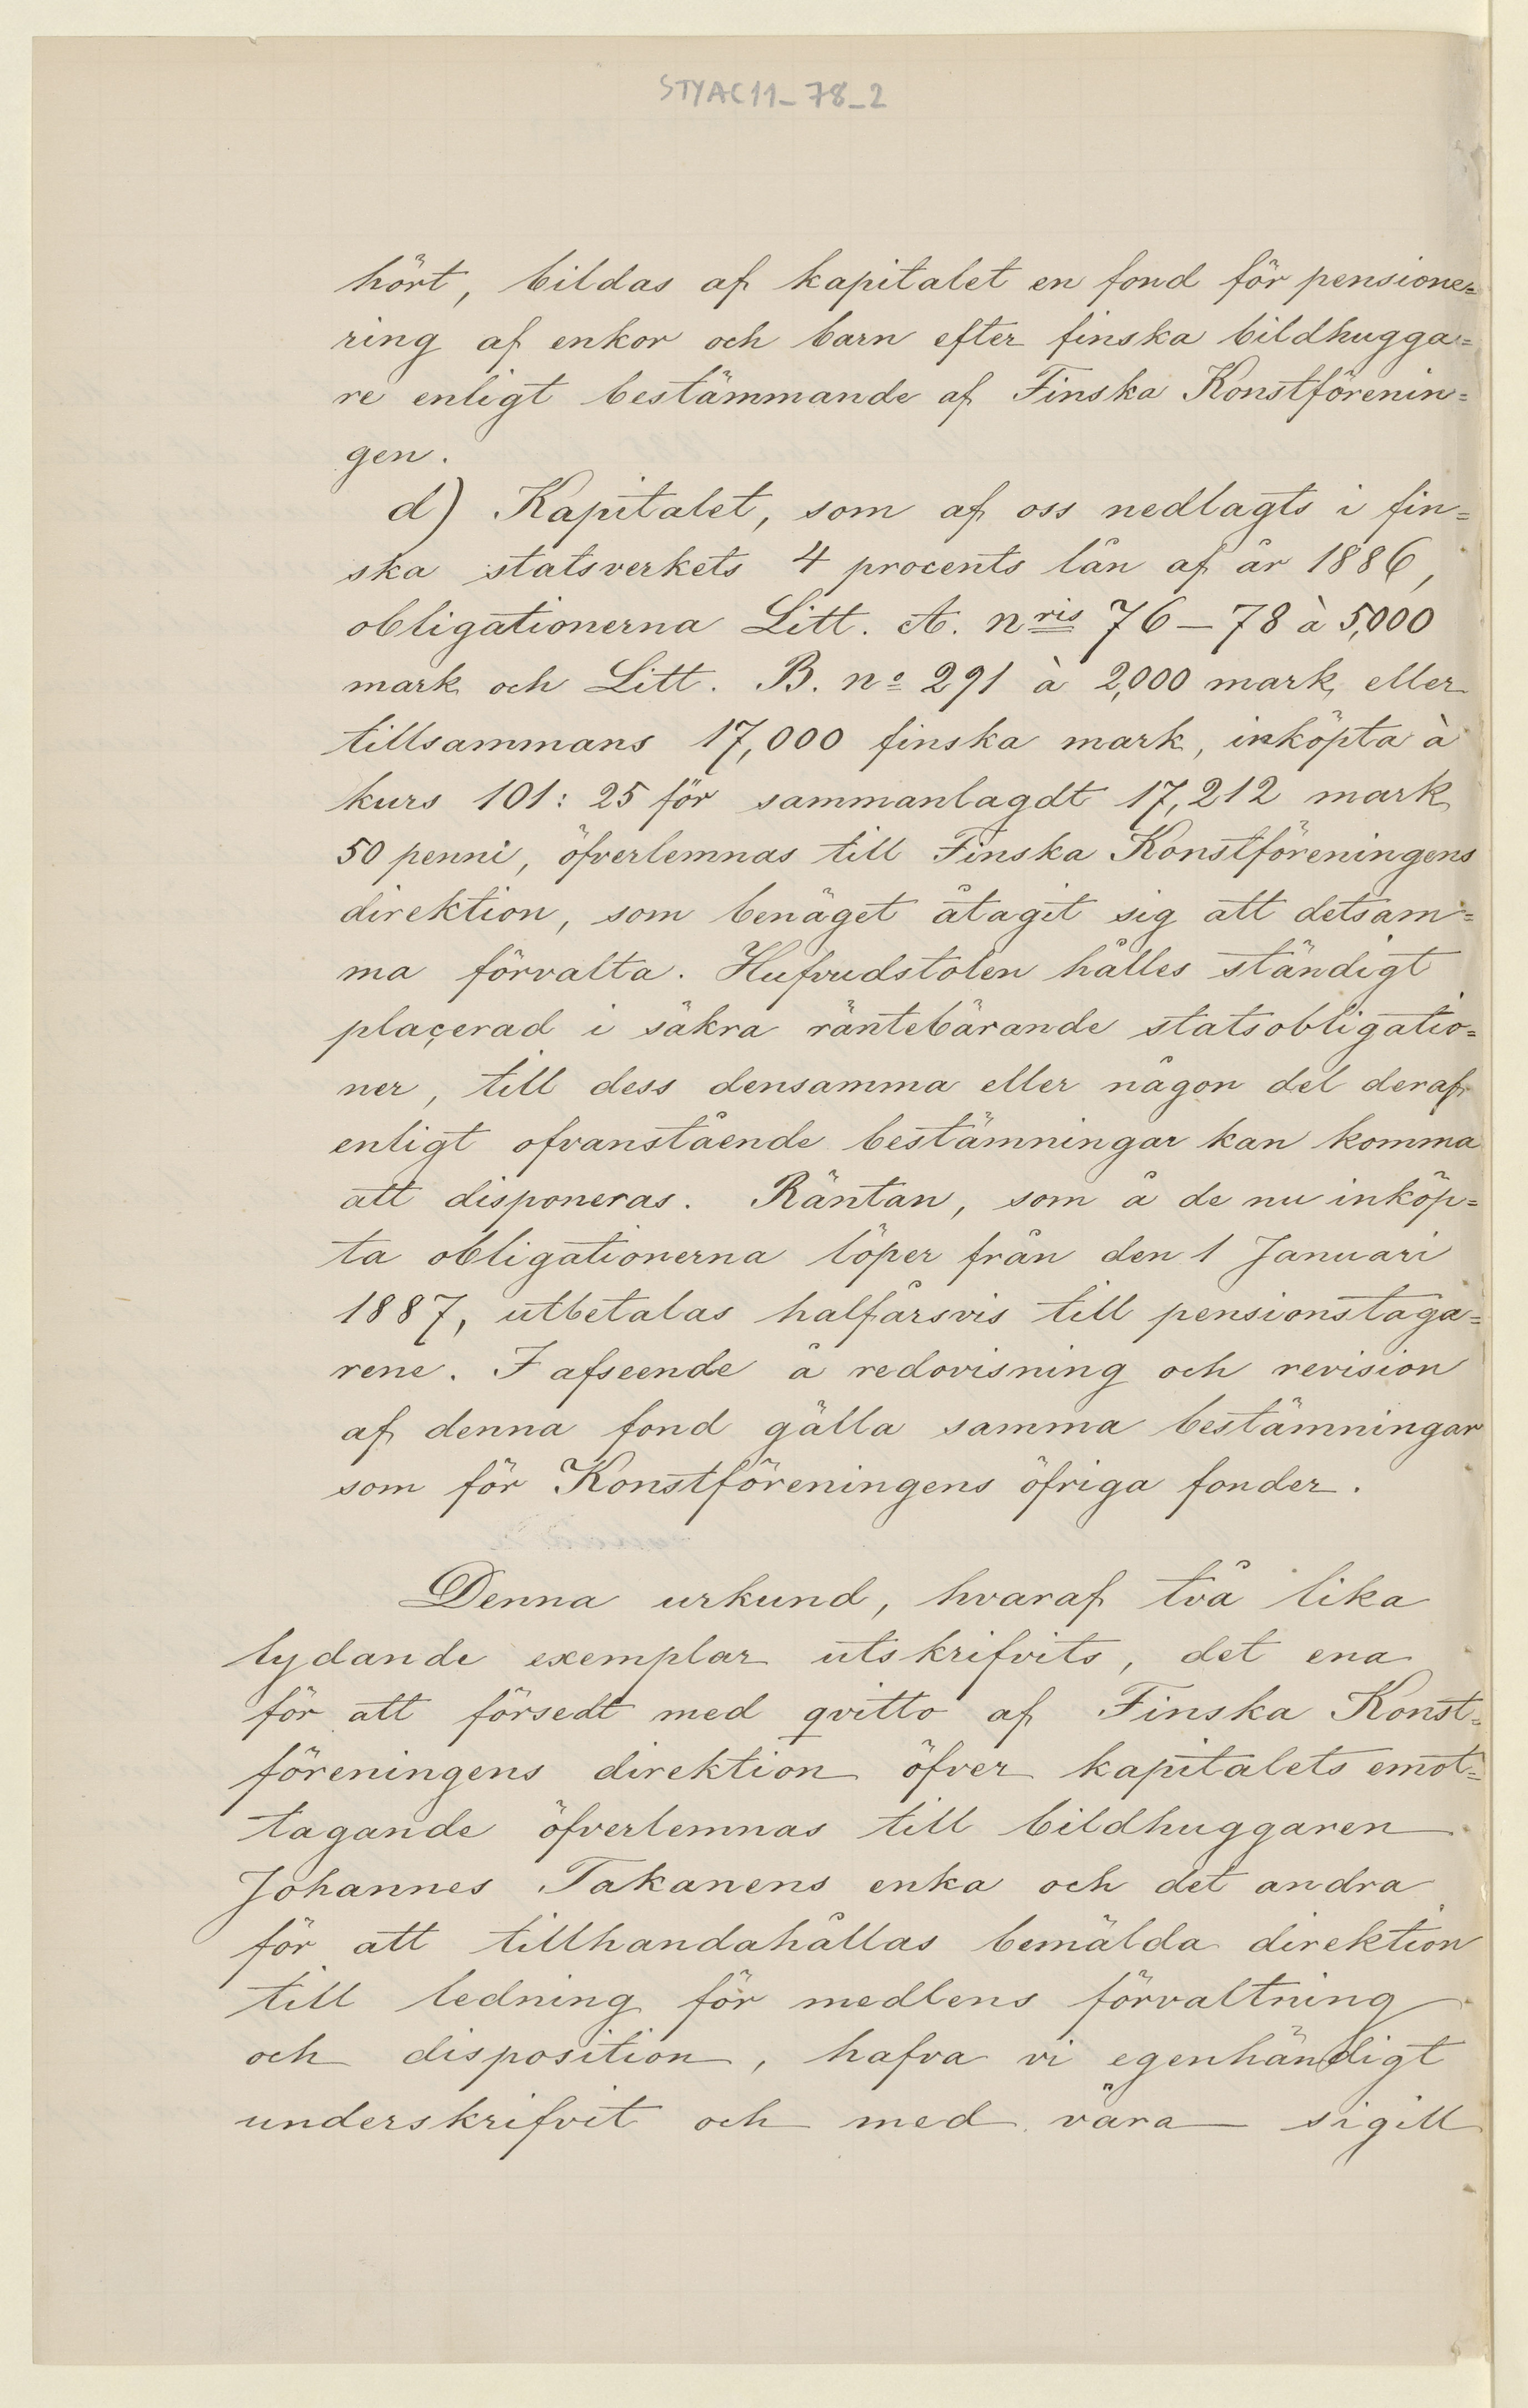 STYAC11_78_2
hört, bildas af kapitalet en fond för pensione=
ring af enkor och barn efter finska bildhugga=
re enligt bestämmande af Finska Konstförenin=
gen.
d) Kapitalet, som af oss nedlagts i fin=
ska statsverkets 4 procents lån af år 1886,
obligationerna Litt. A. nris 76–78 à 5,000
mark och Litt. B. no 291 à 2,000 mark, eller
tillsammans 17,000 finska mark, inköpta à
kurs 101: 25 för sammanlagdt 17,212 mark
50 penni, öfverlemnas till Finska Konstföreningens
direktion, som benäget åtagit sig att detsam=
ma förvalta. Hufvudstolen hålles ständigt
plaçerad i säkra räntebärande statsobligatio=
ner, till dess densamma eller någon del deraf
enligt ofvanstående bestämningar kan komma
att disponeras. Räntan, som å de nu inköp=
ta obligationerna löper från den 1 Januari
1887, utbetalas halfårsvis till pensionstaga=
rene. I afseende å redovisning och revision
af denna fond gälla samma bestämningar
som för Konstföreningens öfriga fonder.
Denna urkund, hvaraf två lika
lydande exemplar utskrifvits, det ena
för att försedt med qvitto af Finska Konst=
föreningens direktion öfver kapitalets emot=
tagande öfverlemnas till bildhuggaren
Johannes Takanens enka och det andra
för att tillhandahållas bemälda direktion
till ledning för medlens förvaltning
och disposition, hafva vi egenhändigt
underskrifvit och med våra sigill